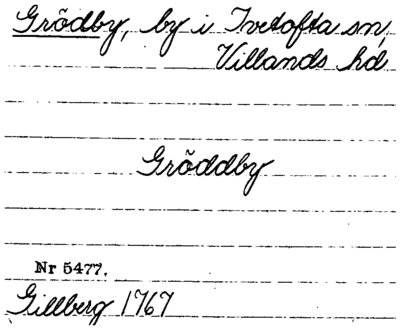 Grödby, by i Ivetofta sn,
Villands hd
Gröddby
Nr 5477.
Gillberg 1767